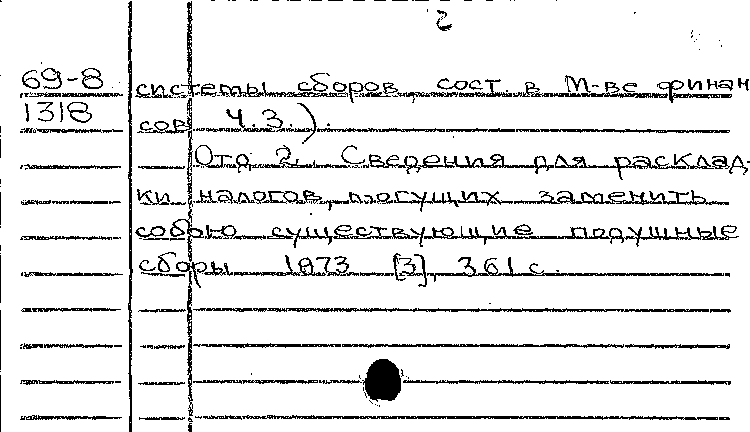 2
69-8 системы сборов, сост. в М-ве финан
1318 сов Ч.3.).
Отд 2. Сведения для расклад-
ки налогов, могущих заменить
собою существующие подушные
сборы 1873 [3], 361 с.